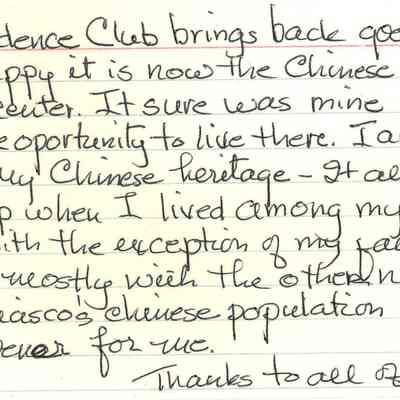 dence Club brings back go
ppy it is now the Chinese
center. It sure was mine
e oportunity to live there. I a
my Chinese heritage - It al
p when I lived among my
ith the exception of my fa
mostly with the other n
iasco's chinese population
ener for me.
Thanks to all of